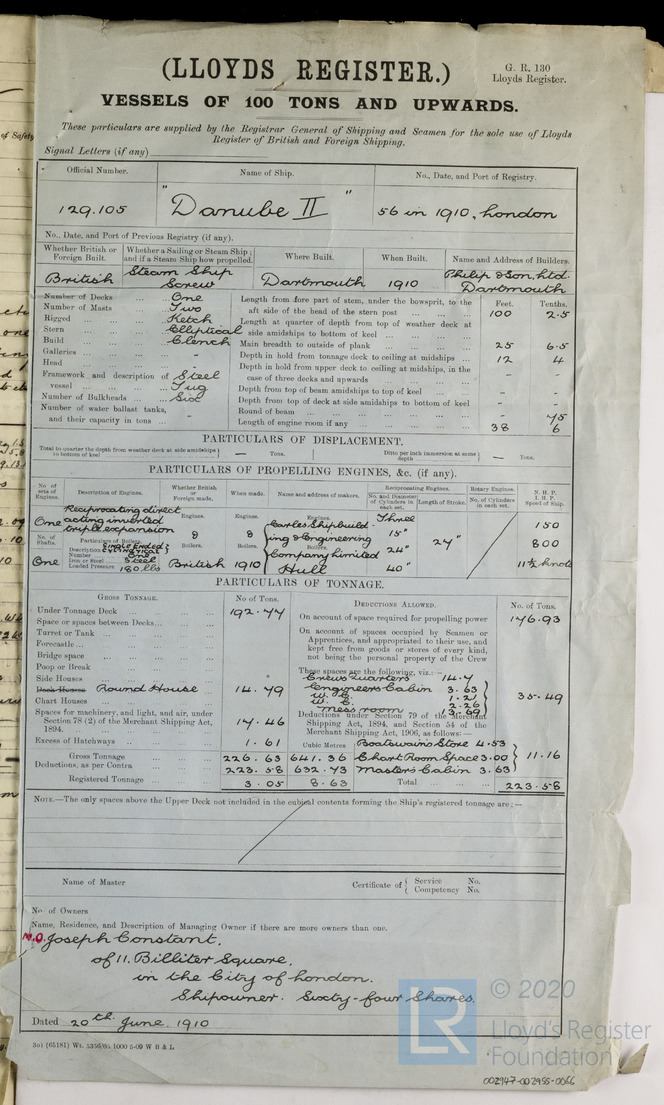 (LLOYDS REGISTER.)
G. R. 130
Lloyds Register.
VESSELS OF 100 TONS AND UPWARDS.
These particulars are supplied by the Registrar General of Shipping and Seamen for the sole use of Lloyds
Register of British and Foreign Shipping.
of Safety
Signal Letters (if any)
Official Number.
Name of Ship.
No., Date, and Port of Registry.
129.105
"Danube II"
56 in 1910, London
No., Date, and Port of Previous Registry (if any).
Whether British or Foreign Built.
Whether a Sailing or Steam Ship; and if a Steam Ship how propelled.
Where Built.
When Built.
Name and Address of Builders.
British
Steam Ship Screw
Dartmouth
1910
Philip & Son, Ltd. Dartmouth
Number of Decks ... One
Number of Masts ... Two
Rigged ... Ketch
Stern ... Elliptical
Build ... Clench
Galleries ... -
Head ... -
Framework and description of vessel ... Steel Tug
Number of Bulkheads ... Six
Number of water ballast tanks, and their capacity in tons ... -
Feet. Tenths.
Length from fore part of stem, under the bowsprit, to the aft side of the head of the stern post ... 100 2.5
Length at quarter of depth from top of weather deck at side amidships to bottom of keel ...
Main breadth to outside of plank ... 25 6.5
Depth in hold from tonnage deck to ceiling at midships ... 12 4
Depth in hold from upper deck to ceiling at midships, in the case of three decks and upwards ... - -
Depth from top of beam amidships to top of keel ... - -
Depth from top of deck at side amidships to bottom of keel - -
Round of beam ... - 45
Length of engine room if any ... 38 6
PARTICULARS OF DISPLACEMENT.
Total to quarter the depth from weather deck at side amidships to bottom of keel — Tons.
Ditto per inch immersion at same depth — Tons.
PARTICULARS OF PROPELLING ENGINES, &c. (if any).
No. of sets of Engines.
Description of Engines.
Whether British or Foreign made.
When made.
Name and address of makers.
Reciprocating Engines.
No. and Diameter of Cylinders in each set.
Length of Stroke.
Rotary Engines.
No. of Cylinders in each set.
N. H. P.
I. H. P.
Speed of Ship.
One
Reciprocating direct acting inverted triple expansion
Engines.
Engines.
Engines.
Earles Shipbuilding & Engineering Company Limited Hull
Three
15"
24"
40"
24"
150
800
11½ knots
No. of Shafts.
One
Particulars of Boilers.
Description Single Ended Cylindrical
Number One
Iron or Steel Steel
Loaded Pressure 180 lbs
Boilers.
British
Boilers.
1910
Boilers.
PARTICULARS OF TONNAGE.
GROSS TONNAGE.
No of Tons.
Under Tonnage Deck ... 192.77
Space or spaces between Decks ...
Turret or Tank ...
Forecastle ...
Bridge space ...
Poop or Break ...
Side Houses ...
Deck Houses Round House ... 14.79
Chart Houses ...
Spaces for machinery, and light, and air, under Section 78 (2) of the Merchant Shipping Act, 1894. ... 17.46
Excess of Hatchways ... 1.61
Cubic Metres
Gross Tonnage ... 226.63 641.36
Deductions, as per Contra ... 223.58 632.73
Registered Tonnage ... 3.05 8.63
DEDUCTIONS ALLOWED.
No. of Tons.
On account of space required for propelling power 176.93
On account of spaces occupied by Seamen or Apprentices, and appropriated to their use, and kept free from goods or stores of every kind, not being the personal property of the Crew
These spaces are the following, viz.:—
Crews Quarters 14.7
Engineers Cabin 3.63
W. C. 1.21
W. C. 2.26
Mess room 13.69
35.49
Deductions under Section 79 of the Merchant Shipping Act, 1894, and Section 54 of the Merchant Shipping Act, 1906, as follows:—
Boatswains Store 4.53
Chart Room Space 3.00
Masters Cabin 3.63
11.16
Total ... 223.58
NOTE.—The only spaces above the Upper Deck not included in the cubical contents forming the Ship's registered tonnage are:—
Name of Master
Certificate of { Service No.
Competency No.
No of Owners
Name, Residence, and Description of Managing Owner if there are more owners than one.
M.O. Joseph Constant,
of 11, Billiter Square,
in the City of London.
Shipowner. Sixty-four Shares.
Dated 20th June, 1910
© 2020
Lloyd's Register
Foundation
LR
002947-002955-0066